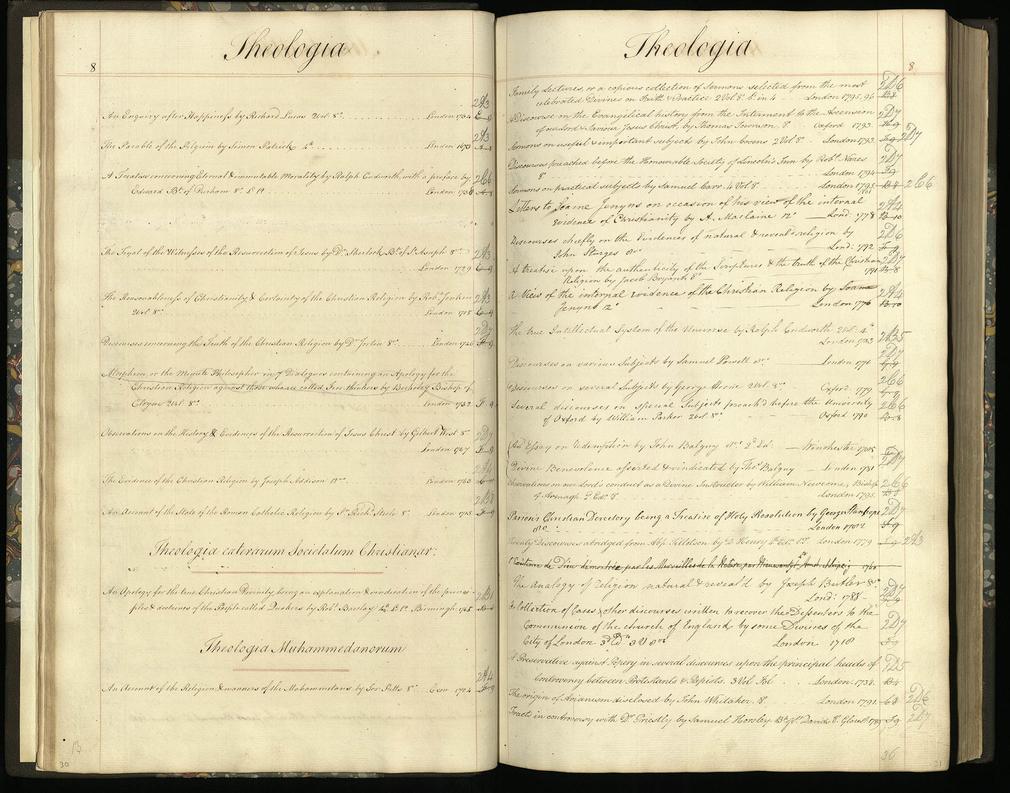 Theologia
8
An Enquiry after Happiness by Richard Lucas 2vol 8º London 1704
The Parable of the Pilgrim by Simon Patrick 4º London 1670
A Treatise concerning Eternal & immutable Morality by Ralph Cudworth with a preface by
Edward Bp of Durham 8º London 1731
The Tryal of the Witnesses of the Resurrection of Jesus by Dr Sherlock Bp of St Asaph 8vo
London 1729
The Reasonableness of Christianity & Certainty of the Christian Religion by Robt Jenkin
2vol 8º London 1715
Discourses concerning the Truth of the Christian Religion by Dr Jortin 8º London 1746
Alciphron or the Minute Philosopher in 7 Dialogues containing an Apology for the
Christian Religion against those who are called Free thinkers by Berkeley Bishop of
Cloyne 2vol 8º London 1732
Observations on the History & Evidences of the Resurrection of Jesus Christ by Gilbert West 8º
London 1767
The Evidence of the Christian Religion by Joseph Addison 12mo London 1730
An Account of the State of the Roman Catholic Religion by Sr Richd Steele 8º London 1715
Theologia caterarum Societatum Christianar:
An Apology for the true Christian Divinity, being an explanation & vindication of the princi-
ples & doctrines of the People called Quakers by Robt Barclay Birmingh. 1765
Theologia Muhammedanorum
An Account of the Religion & manners of the Mahometans by Jos: Pitts 8º Exon 1704
B
30
Theologia
8
Family Lectures, or a copious collection of Sermons selected from the most
celebrated Divines on Faith & Practice 2Vol 8º London 1795.96
A Discourse on the Evangelical history from the Interment to the Ascension
of our Lord & Saviour Jesus Christ, by Thomas Townson 8º Oxford 1793
Sermons on useful & important subjects by John Cooens 2Vol 8º London 1793
Discourses preached before the Honourable Society of Lincoln's Inn by Robt Nares
8º London 1794
Sermons on practical subjects by Samuel Carr 4Vol 8º London 1795
Letters to Soame Jenyns on occasion of his view of the internal
evidence of Christianity by A. Maclaine 12º Lond: 1778
Discourses chiefly on the Evidences of natural & reveal'd religion by
John Sturges 8vo Lond: 1792
A treatise upon the authenticity of the Scriptures & the truth of the Christian
Religion by Jacob Bryant 8º 1791
A View of the internal evidence of the Christian Religion by Soame
Jenyns 12º London 1776
The true Intellectual System of the Universe by Ralph Cudworth 2Vol: 4º
London 1743
Discourses on various Subjects by Samuel Powell 8vo London 1776
Discourses on several Subjects by George Horne 2Vol 8º Oxford 1779
Several discourses on special Subjects preach'd before the University
of Oxford by William Parker 2vol 8º Oxford 1790
An Essay on Redemption by John Balguy 8vo 2d Ed. Winchester 1785
Divine Benevolence asserted & vindicated by Thos Balguy London 1781
Observations on our Lord's conduct as a Divine Instructor by William Newcome, Bishop
of Armagh 2d Ed. 8º London 1795
Parson's Christian Directory being a Treatise of Holy Resolution by George Stanhope
8vo London 1702
Twenty Discourses abridged from Abp Tillotson by London 1779
L'Existence de Dieu démontrée par les Merveilles de la Nature 1760
The Analogy of Religion natural & reveal'd by Joseph Butler 8º
Lond: 1788
A Collection of Cases & other discourses written to recover the Dissenters to the
Communion of the church of England by some Divines of the
City of London 3d Ed. 3V 8vo London 1718
A Preservative against Popery in several discourses upon the principal heads of
Controversy between Protestants & Papists. 3Vol Fol London 1738
The origin of Arianism disclosed by John Whitaker. 8º London 1791
Tracts in controversy with Dr Priestly by Samuel Horsley Bp of St Davids 8º Gloucr 1789
36
31